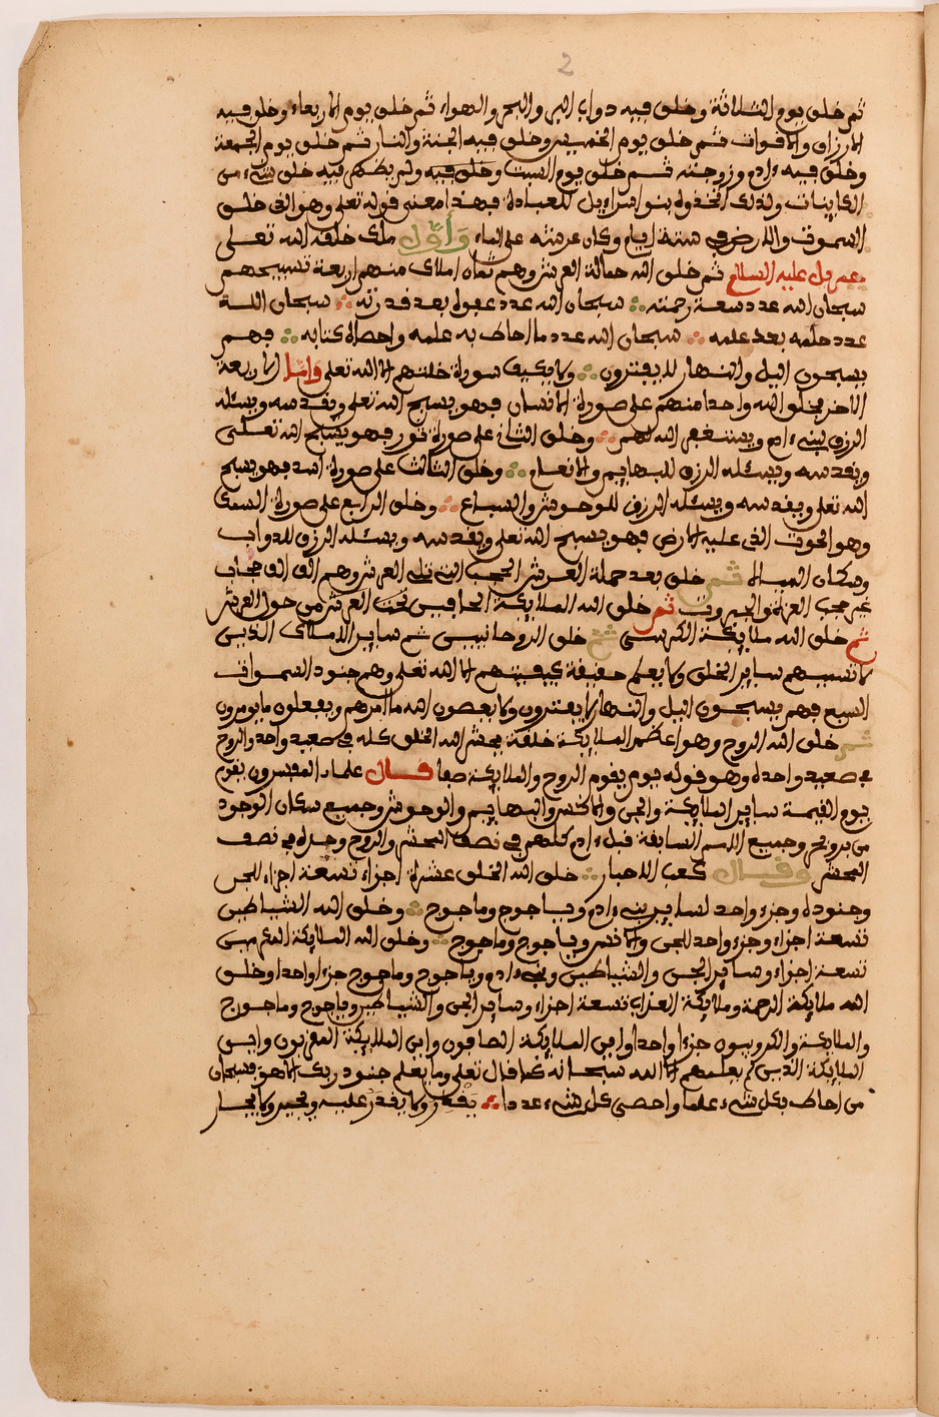 2
ثم خلق يوم الثلاثة وخلق فيه دواب البر والبحر والهواء ثم خلق يوم الاربعاء وخلق فيه
الارزاق والاقوات ثم خلق يوم الخميس وخلق فيه الجنة والنار ثم خلق يوم الجمعة
وخلق فيه ءادم وزوجته ثم خلق يوم السبت وخلق فيه ولم يظهر فيه خلق شيء من
الكاينات ولذلك اتخذوه بنوا اسراءيل للعبادة فهذا معنى قوله تعلى وهو الذى خلق
السموت والارض في ستة ايام وكان عرشه على الماء وأول ملك خلقه الله تعلى
عليه السلام ثم خلق الله حمالة العرش وهم ثمان املاك منهم اربعة تسبيحهم
سبحان الله عدد سعة رحمته سبحان الله عدد عفوه بعد قدرته سبحان الله
عدد حلمه بعد علمه سبحان الله عدد ما احاط به علمه واحصاه كتابه فهم
يسبحون اليل والنهار لا يفترون ولا يكيف صورة خلقهم الا الله تعلى وامّا الاربعة
الاخر فخلق الله واحدا منهم على صورة الانسان فهو يسبح الله تعلى ويقدسه ويسئله
الرزق لبنى ءادم ويستغفر الله لهم وخلق الثاني على صورة ثور فهو يسبح الله تعلى
ويقدسه ويسئله الرزق للبهايم والانعام وخلق الثالث على صورة اسد فهو يسبح
الله تعلى ويقدسه ويسئله الرزق للوحوش والسباع وخلق الرابع على صورة السمك
وهو الحوت الذى عليه الارض فهو يسبح الله تعلى ويقدسه ويسئله الرزق للدواب
وسكان المياه ثم خلق بعد حملة العرش الحجب التى تلى العرش وهم الف الف حجاب
غير حجب العزة والجبروت ثم خلق الله الملايكة الحافين تحت العرش من حول العرش
ثم خلق الله ملايكة الكرسى ثم خلق الروحانيين ثم ساير الاملاك الذين
لا تسعهم ساير الخلق ولا يعلم حقيقة كيفيتهم الا الله تعلى وهم جنود السموات
السبع فهم يسبحون اليل والنهار لا يفترون ولا يعصون الله ما امرهم ويفعلون ما يومرون
ثم خلق الله الروح وهو اعظم الملايكة خلقة يحشر الله الخلق كله في صعيد واحد والروح
في صعيد واحدة وهو قوله يوم يقوم الروح والملايكة صفا قال علماء المفسرون يقوم
يوم القيمة ساير الملايكة والجن والانس والبهايم والوحوش وجميع سكان الوجود
من بر وبحر وجميع الامم السابقة قبل ءادم كلهم في نصف المحشر والروح وحده في نصف
المحشر وقال كعب الاحبار خلق الله الخلق عشرة اجزاء تسعة اجزاء للجن
وجنوده وجزء واحد لساير بني ءادم وياجوج وماجوج وخلق الله الشياطين
تسعة اجزاء وجزء واحد للجن والانس وياجوج وماجوج وخلق الله الملايكة
تسعة اجزاء وساير الجن والشياطين وبني ءادم وياجوج وماجوج جزءا واحدا وخلق
الله ملايكة الرحمة وملايكة العذاب تسعة اجزاء وساير الجن والشياطين وياجوج وماجوج
والملايكة والكروبيون جزءا واحدا واين الملايكة الصافون واين الملايكة المقربون واين
الملايكة الذين لم يعلمهم الا الله سبحانه كما قال تعلى وما يعلم جنود ربك الا هو فسبحان
من احاط بكل شيء علما واحصى كل شيء عددا يقدر ولا يقدر عليه ويجير ولا يجار